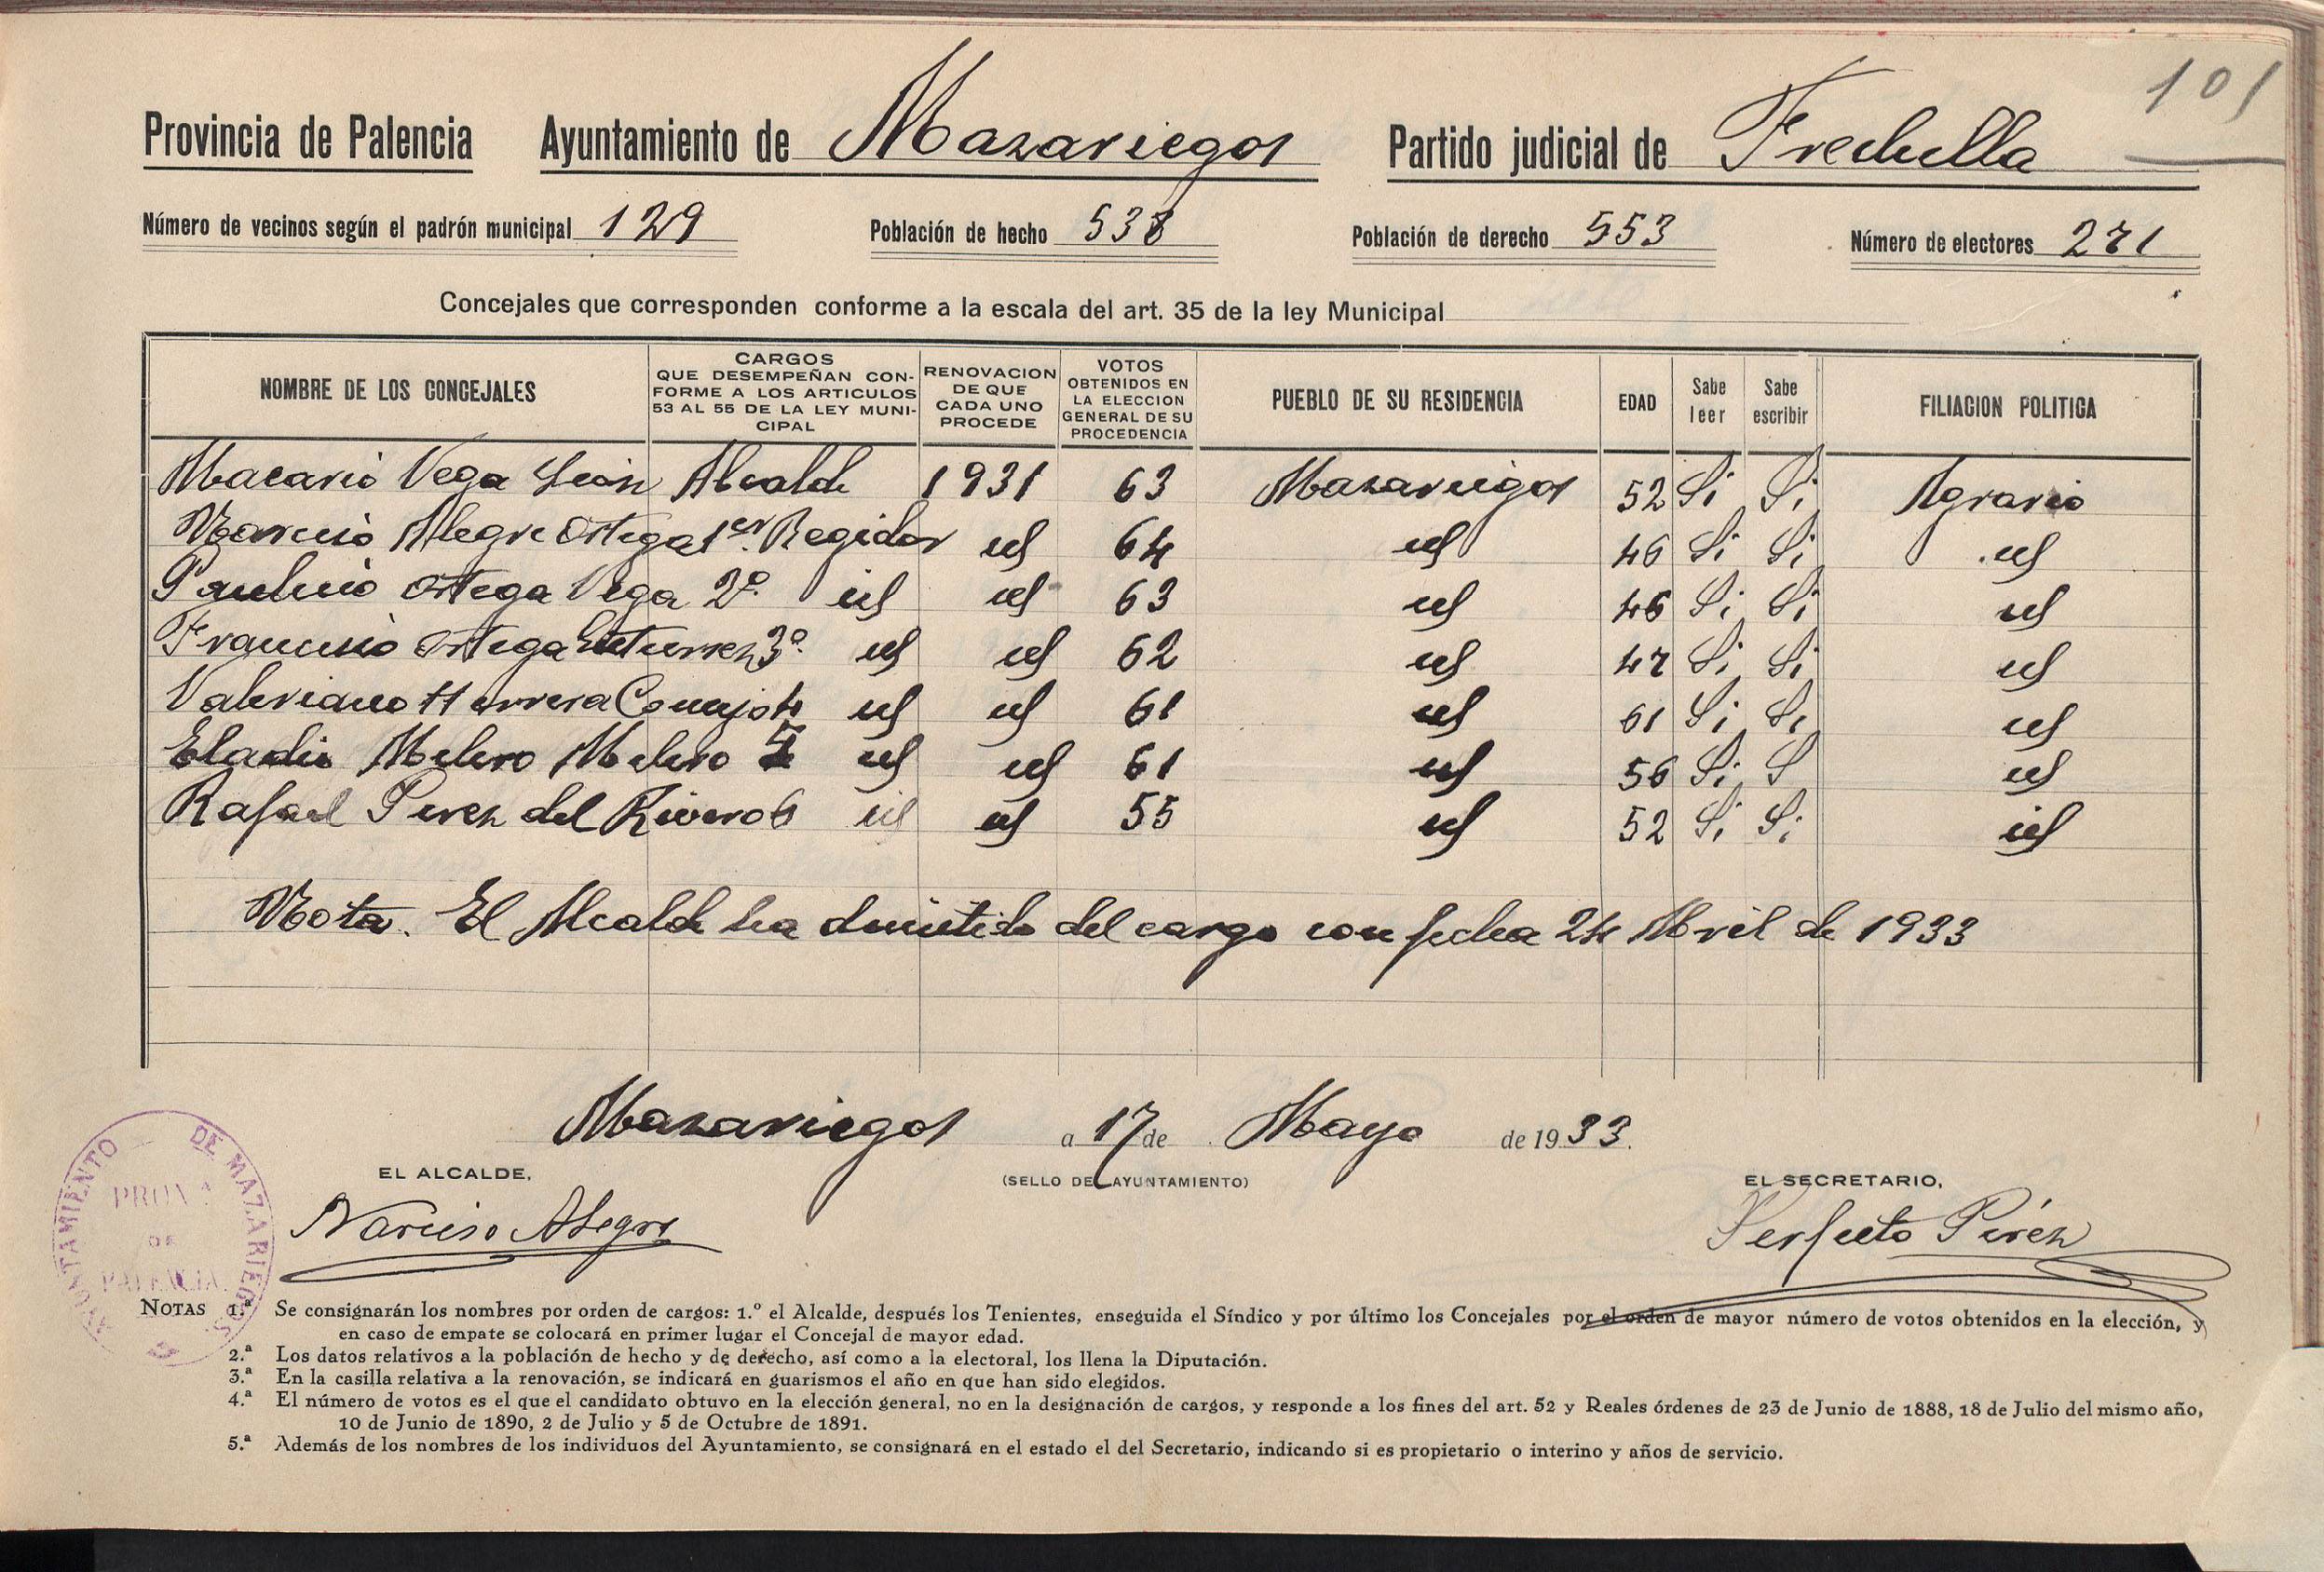 101
Provincia de Palencia Ayuntamiento de Mazariegos Partido judicial de Frechilla
Número de vecinos según el padrón municipal 129 Población de hecho 538 Población de derecho 553 Número de electores 271
Concejales que corresponden conforme a la escala del art. 35 de la ley Municipal
NOMBRE DE LOS CONCEJALES
CARGOS
QUE DESEMPEÑAN CON-
FORME A LOS ARTICULOS
53 AL 55 DE LA LEY MUNI-
CIPAL
RENOVACION
DE QUE
CADA UNO
PROCEDE
VOTOS
OBTENIDOS EN
LA ELECCION
GENERAL DE SU
PROCEDENCIA
PUEBLO DE SU RESIDENCIA
EDAD
Sabe
leer
Sabe
escribir
FILIACION POLITICA
Macario Vega León Alcalde 1931 63 Mazariegos 52 Si Si Agrario
Narciso Alegre Ortega 1er. Regidor id 64 id 46 Si Si id
Paulino Ortega Vega 2º id id 63 id 46 Si Si id
Francisco Ortega Gutierrez 3º id id 62 id 47 Si Si id
Valeriano Herrera Conejo 4 id id 61 id 61 Si Si id
Eladio Melero Melero 5 id id 61 id 56 Si S id
Rafael Perez del Rivero 6 id id 55 id 52 Si Si id
Nota. El Alcalde ha dimitido del cargo con fecha 24 Abril de 1933
Mazariegos a 17 de Mayo de 1933.
EL ALCALDE,
(SELLO DEL AYUNTAMIENTO)
EL SECRETARIO,
Narciso Alegre
Perfecto Pérez
AYUNTAMIENTO DE MAZARIEGOS
PROV.ª
DE
PALENCIA
NOTAS 1.ª Se consignarán los nombres por orden de cargos: 1.º el Alcalde, después los Tenientes, enseguida el Síndico y por último los Concejales por el orden de mayor número de votos obtenidos en la elección, y
en caso de empate se colocará en primer lugar el Concejal de mayor edad.
2.ª Los datos relativos a la población de hecho y de derecho, así como a la electoral, los llena la Diputación.
3.ª En la casilla relativa a la renovación, se indicará en guarismos el año en que han sido elegidos.
4.ª El número de votos es el que el candidato obtuvo en la elección general, no en la designación de cargos, y responde a los fines del art. 52 y Reales órdenes de 23 de Junio de 1888, 18 de Julio del mismo año,
10 de Junio de 1890, 2 de Julio y 5 de Octubre de 1891.
5.ª Además de los nombres de los individuos del Ayuntamiento, se consignará en el estado el del Secretario, indicando si es propietario o interino y años de servicio.